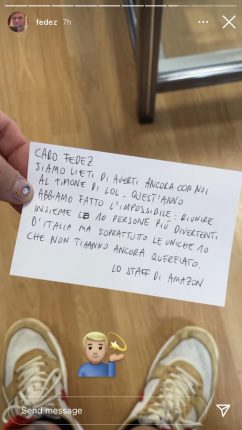 fedez 7h
CARO FEDEZ
SIAMO LIETI DI AVERTI ANCORA CON NOI
AL TIMONE DI LOL. QUEST'ANNO
ABBIAMO FATTO L'IMPOSSIBILE: RIUNIRE
INSIEME LE 10 PERSONE PIÙ DIVERTENTI
D'ITALIA MA SOPRATTUTTO LE UNICHE 10
CHE NON TI HANNO ANCORA QUERELATO.
LO STAFF DI AMAZON
Send message